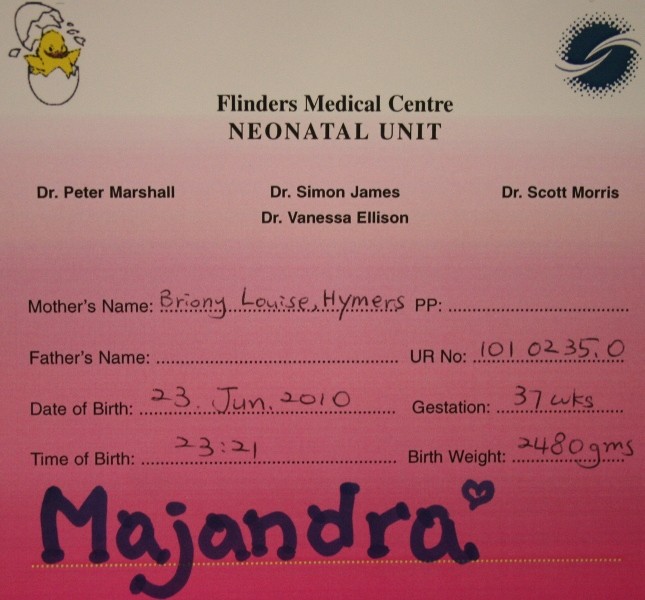 Flinders Medical Centre
NEONATAL UNIT
Dr. Peter Marshall Dr. Simon James Dr. Scott Morris
Dr. Vanessa Ellison
Mother's Name: Briony Louise, Hymers PP:
Father's Name: UR No: 101 0235.0
Date of Birth: 23. Jun. 2010 Gestation: 37 wks
Time of Birth: 23:21 Birth Weight: 2480gms
Majandra